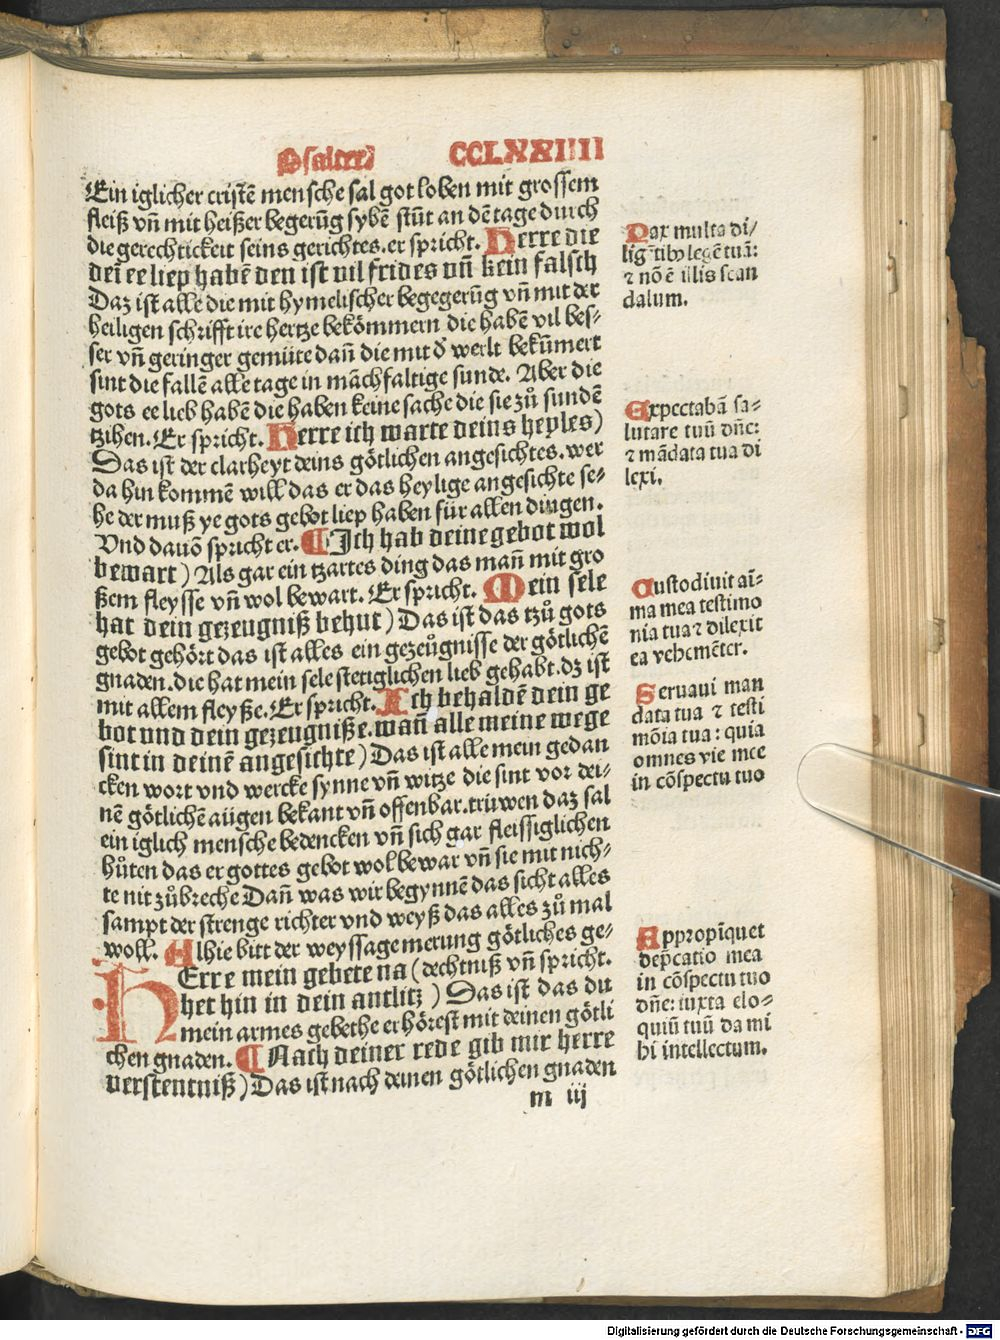 Psalter CCLXXIIII
Ein iglicher cristẽ mensche sal got loben mit grossem
fleiß vñ mit heißer begerũg sybẽ stũt an dẽ tage durch
die gerechtickeit seins gerichtes. er spricht. Herre die
dei ee liep habẽ den ist vil frides vñ kein falsch
Daz ist alle die mit hymelischer begegerũg vñ mit der
heiligen schrifft ire hertze bekömmern die habẽ vil bes⸗
ser vñ geringer gemüte dañ die mit d̕ werlt bekũmert
sint die fallẽ alle tage in mãchfaltige sunde. Aber die
gots ee lieb habẽ die haben keine sache die sie zů sundẽ
tzihen. Er spricht. Herre ich warte deins heyles)
Das ist der clarheyt deins götlichen angesichtes. wer
da hin kommẽ will das er das heylige angesichte se⸗
he der muß ye gots gebot liep haben für allen dingen.
Vnd dauõ spricht er. ¶ Ich hab deine gebot wol
bewart) Als gar ein tzartes ding das mañ mit gro
ßem fleysse vñ wol bewart. Er spricht. Mein sele
hat dein gezeugniß behut) Das ist das tzů gots
gebot gehört das ist alles ein gezeůgnisse der götlichẽ
gnaden. die hat mein sele stetiglichen lieb gehabt. dz ist
mit allem fleyße. Er spricht. Ich behaldẽ dein ge
bot vnd dein gezeugniße. wañ alle meine wege
sint in deinẽ angesichte) Das ist alle mein gedan
cken wort vnd wercke synne vñ witze die sint vor dei⸗
nẽ götlichen augen bekant vñ offenbar. truwen daz sal
ein iglich mensche bedencken vñ sich gar fleissiglichen
hůten das er gottes gebot wol bewar vñ sie mit nich⸗
te nit zůbreche Dañ was wir begynnẽ das sicht alles
sampt der strenge richter vnd weyß das alles zů mal
woll. Alhie bitt der weyssage merung götliches ge⸗
HErre mein gebete na (dechtniß vñ spricht.
het hin in dein antlitz) Das ist das du
mein armes gebethe erhörest mit deinen götli
chen gnaden. ¶ Nach deiner rede gib mir herre
verstentniß) Das ist nach deinen götlichen gnaden
m iij
Pax multa di/
lig̃tibꝰ legẽ tuã:
⁊ nõ ẽ illis scan
dalum.
Expectabã sa⸗
lutare tuũ dñe:
⁊ mãdata tua di
lexi.
Custodiuit aĩ⸗
ma mea testimo
nia tua ⁊ dilexit
ea vehemẽter.
Seruaui man
data tua ⁊ testi
mõia tua: quia
omnes vie mee
in cõspectu tuo
Appropĩquet
dep̃catio mea
in cõspectu tuo
dñe: iuxta elo⸗
quiũ tuũ da mi
hi intellectum.
Digitalisierung gefördert durch die Deutsche Forschungsgemeinschaft - DFG